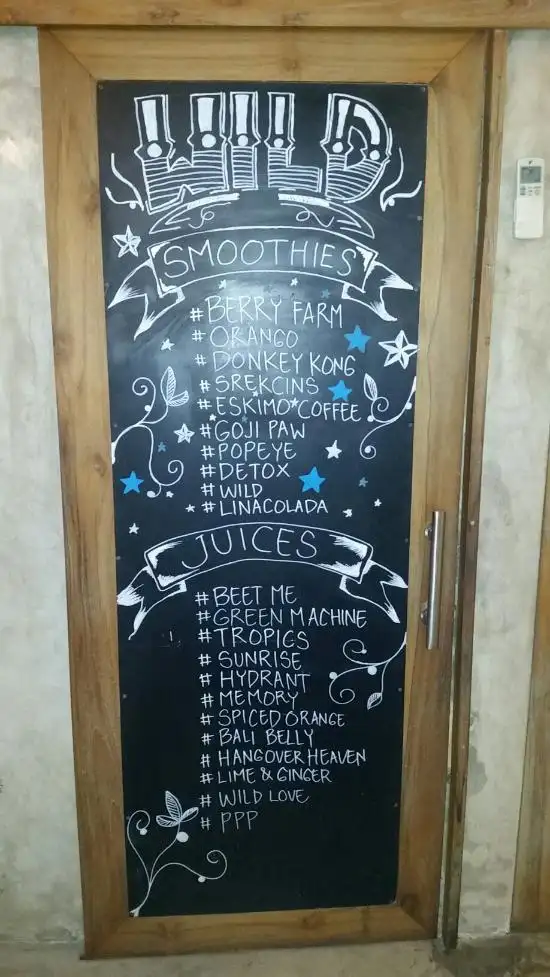 WILD
SMOOTHIES
# BERRY FARM
# ORANGO
# DONKEY KONG
# SREKCINS
# ESKIMO COFFEE
# GOJI PAW
# POPEYE
# DETOX
# WILD
# LINACOLADA
JUICES
# BEET ME
# GREEN MACHINE
# TROPICS
# SUNRISE
# HYDRANT
# MEMORY
# SPICED ORANGE
# BALI BELLY
# HANGOVER HEAVEN
# LIME & GINGER
# WILD LOVE
# PPP